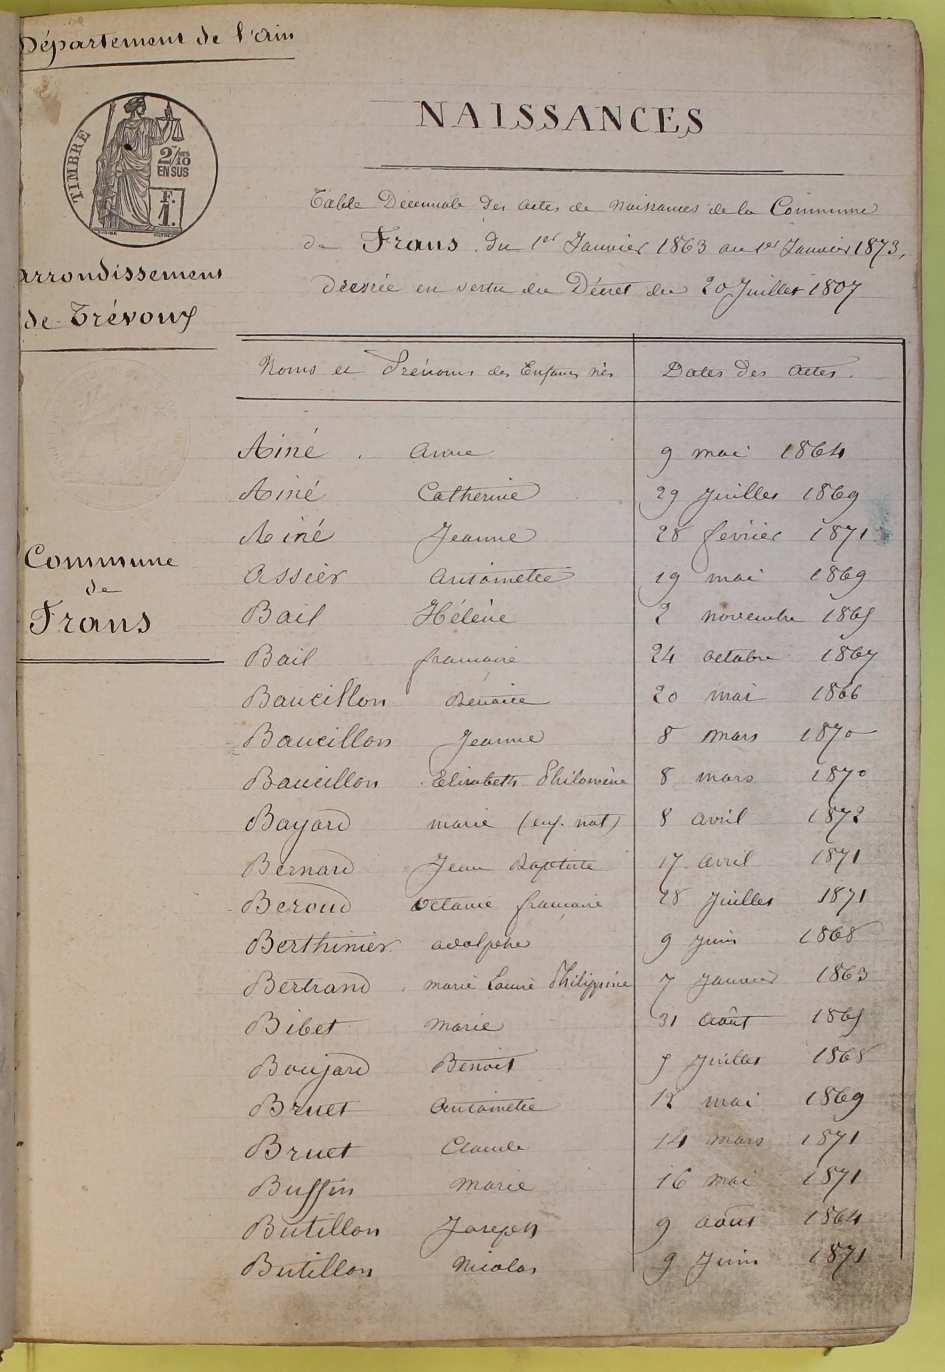 Département de l'Ain
TIMBRE
2/10
EN SUS
F.
1.
arrondissement
de Trévoux
Commune
de
Frans
NAISSANCES
Table Décennale des actes de naissances de la Commune
de Frans du 1er Janvier 1863 au 1er Janvier 1873,
dressée en vertu du Décret du 20 Juillet 1807
Noms et Prénoms des Enfants nés Dates des actes.
Ainé Anne 9 mai 1864
Ainé Catherine 29 Juillet 1869
Ainé Jeanne 28 février 1871
Assier Antoinette 19 mai 1869
Bail Hélène 2 novembre 1865
Bail françoise 24 octobre 1867
Baucillon Benoite 20 mai 1866
Baucillon Jeanne 8 mars 1870
Baucillon Elisabeth Philomène 8 mars 1870
Bayard marie (enf. nat) 8 avril 1872
Bernard Jean Baptiste 17 avril 1871
Beroud Octavie françoise 28 Juillet 1871
Berthinier adolphe 9 Juin 1868
Bertrand marie Louise Philippine 7 Janvier 1863
Bibet Marie 31 août 1865
Boujard Benoit 5 Juillet 1868
Bruet Antoinette 12 mai 1869
Bruet Claude 14 mars 1871
Buffin Marie 16 mai 1871
Butillon Joseph 9 août 1864
Butillon Nicolas 9 Juin 1871